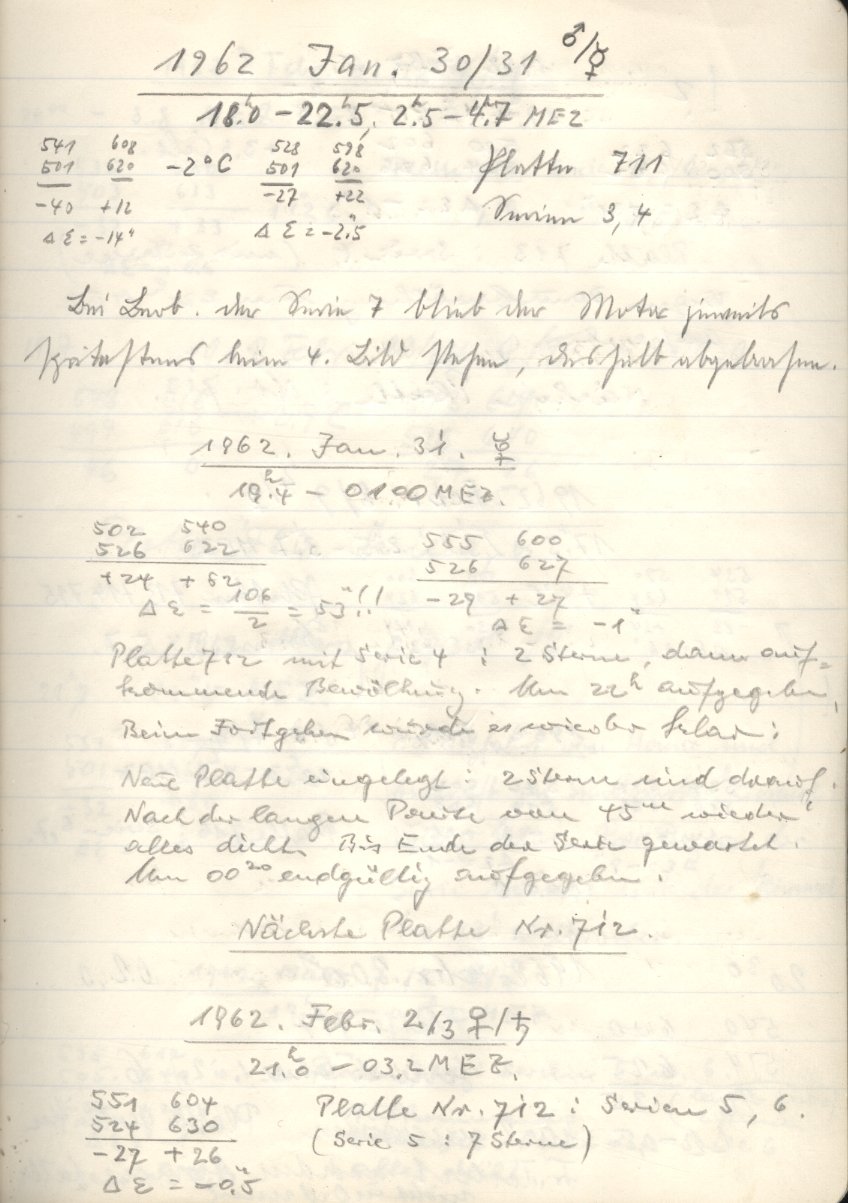 1962 Jan. 30/31 ♂/☿
18ʰ.0 – 22ʰ.5, 2ʰ.5 – 4ʰ.7 MEZ
541 608 528 598
501 620 -2°C 501 620 Platte 711
-40 +12 -27 +22 Serien 3, 4
Δ ε = -14" Δ ε = -2".5
Bei Beob. der Serie 7 blieb der Motor jeweils
spätestens beim 4. Bild stehen, deshalb abgebrochen.
1962. Jan. 31. ☿
19ʰ.4 – 01.00 MEZ.
502 540 555 600
526 622 526 627
+24 +82 -29 +27
Δ ε = 106/2 = 53"!! Δ ε = -1"
Platte 712 mit Serie 4 : 2 Sterne, dann auf=
kommende Bewölkung. Um 22ʰ aufgegeben,
Beim Fortgehen wurde es wieder klar:
Neue Platte eingelegt: 2 Sterne sind darauf.
Nach der langen Pause von 45ᵐ wieder
alles dicht. Bis Ende der Serie gewartet.
Um 00²⁰ endgültig aufgegeben.
Nächste Platte Nr. 712.
1962. Febr. 2/3 ♀/♄
21ʰ.0 – 03.2 MEZ.
551 604 Platte Nr. 712 : Serien 5, 6.
524 630 (Serie 5 : 7 Sterne)
-27 +26
Δ ε = -0".5